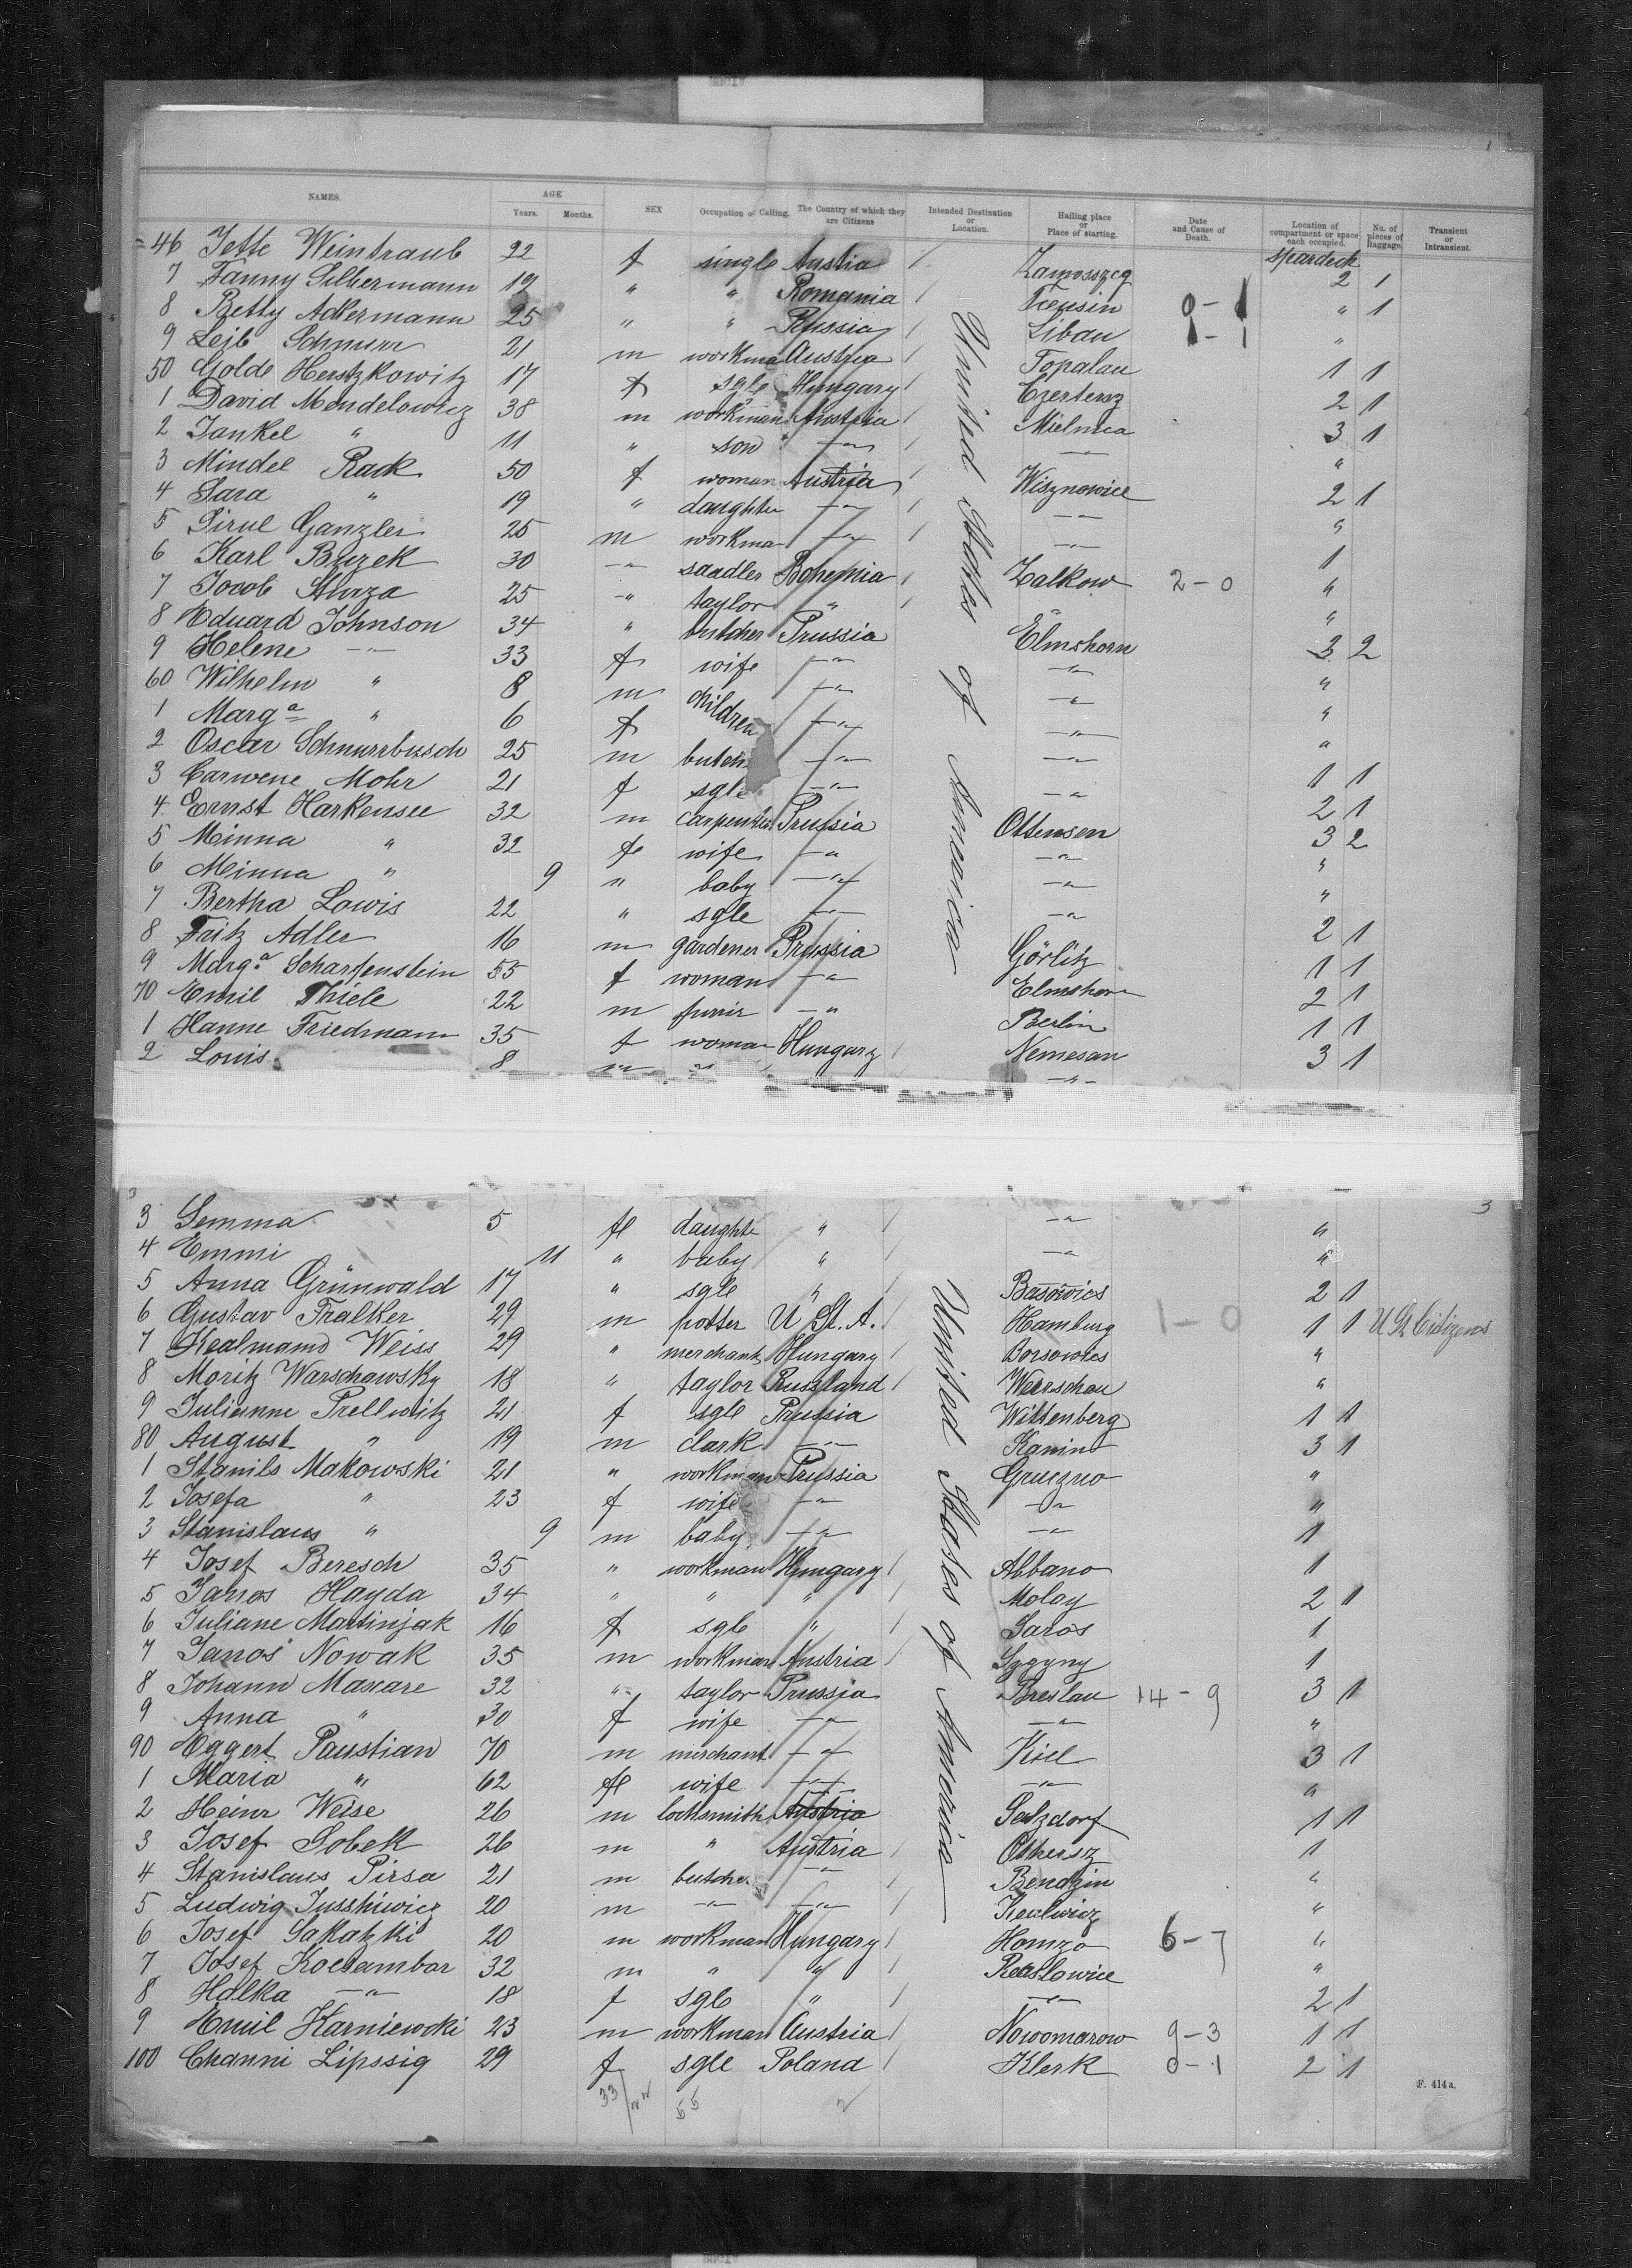 NAMES. AGE Years. Months. SEX Occupation of Calling. The Country of which they are Citizens Intended Destination or Location. Hailing place or Place of starting. Date and Cause of Death. Location of compartment or space each occupied. No. of pieces of Baggage. Transient or Intransient.
spardeck
46 Jette Weintraub 22 f single Austria / 2 1
7 Fanny Silbermann 19 " " Romania / " 1
8 Betty Adlermann 25 " " Russia / Libau "
9 Leib Schnurr 21 m workman Austria / Topalau 1 1
50 Golde Herszkowitz 17 f sgle Hungary / 2 1
1 David Mendelowicz 38 m workman Austria / Mielnica 3 1
2 Jankel " 11 " son —"— / —"— "
3 Mindel Rack 50 f woman Austria / Wisznowice 2 1
4 Sara " 19 " daughter —"— / —"— "
5 Sirul Ganzler 25 m workman —"— / —"— 1
6 Karl Buzek 30 —"— saadler Bohemia / Zalkow 2-0 "
7 25 —"— taylor " / "
8 Eduard Johnson 34 " butcher Prussia Elmshorn 3 2
9 Helene —"— 33 f wife —"— —"— "
60 Wilhelm " 8 m children —"— —"— "
1 Marga " 6 f —"— —"— "
2 Oscar Schnurrbusch 25 m —"— —"— 1 1
3 Mohr 21 f sgle —"— —"— 2 1
4 Ernst Harkensee 32 m carpenter Prussia Ottensen 3 2
5 Minna " 32 f wife —"— —"— "
6 Minna " 9 " baby —"— —"— "
7 Bertha Lowis 22 " sgle —"— —"— 2 1
8 Fritz Adler 16 m gardener Prussia Görlitz 1 1
9 Marga Scharfenstein 55 f woman —"— Elmshorn 2 1
70 Emil Thiele 22 m —"— Berlin 1 1
1 Hanne Friedmann 35 f woman Hungary / Nemesan 3 1
2 Louis 8 m —"—
United States of America
3 3
3 Semma 5 f daughter " / —"— "
4 Emmi 11 " baby " / —"— "
5 Anna Grünwald 17 " sgle " / 2 1
6 Gustav Fralker 29 m potter U St. A. Hamburg 1-0 1 1 U St Citizens
7 Weiss 29 " merchant Hungary / Borsowics "
8 Moritz Warschawsky 18 " taylor Russland / Warschau "
9 Julianne Prellwitz 21 f sgle Prussia Wittenberg 1 1
80 August " 19 m clark —"— Kanin 3 1
1 Stanils Makowski 21 " workman Prussia Gruczno "
2 Josefa " 23 f wife —"— —"— "
3 Stanislaus " 9 m baby —"— —"— 1
4 Josef Beresch 35 " workman Hungary / Abbano 1
5 Janos Hayda 34 " " " / Molay 2 1
6 Juliane Martinjak 16 f sgle " / Saros 1
7 Janos Nowak 35 m workman Austria / 1
8 Johann Maxare 32 " taylor Prussia Breslau 14-9 3 1
9 Anna " 30 f wife —"— —"— "
90 Eggert Paustian 70 m merchant —"— Kiel 3 1
1 Maria " 62 f wife —"— —"— "
2 Heinr Weise 26 m locksmith Austria Salzdorf 1 1
3 Josef Sobek 26 m " Austria / 1
4 Stanislaus Pirsa 21 m butcher —"— / Bendzin "
5 Ludwig 20 m —"— —"— / "
6 Josef Sakatzki 20 m workman Hungary / Homzo 6-7 "
7 Josef Koesambar 32 m " " / Reaslowice "
8 Halka —"— 18 f sgle " / —"— 2 1
9 Emil Karniewski 23 m workman Austria / Nowomarow 9-3 1 1
100 Channi Lipssig 29 f sgle Poland / Klerk 0-1 2 1
United States of America
33/22 55
F. 414a.